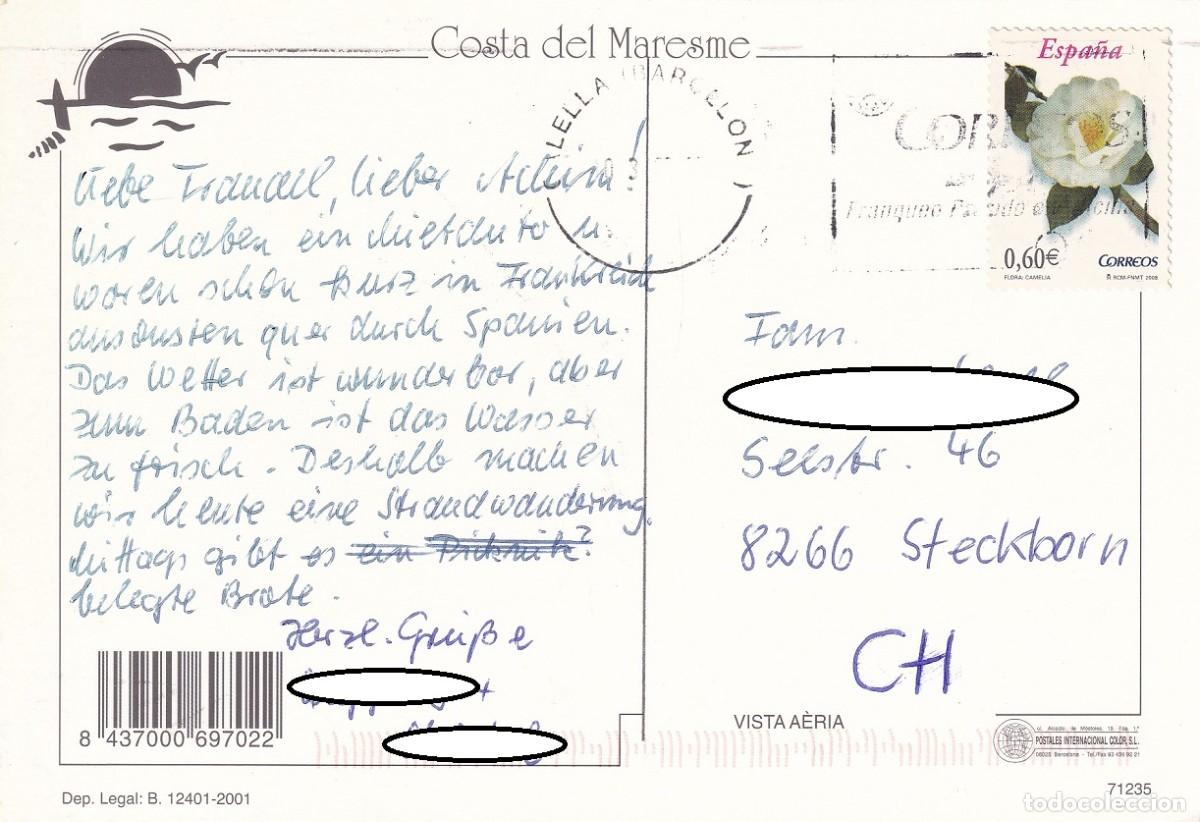 Costa del Maresme
España
ALELLA (BARCELONA)
CORREOS
Franqueo Pagado en Oficina
0,60€
CORREOS
FLORA: CAMELIA
RCM-FNMT 2008
Liebe, lieber Achim!
Wir haben ein Mietauto u.
waren schon kurz in Frankreich
ansonsten quer durch Spanien.
Das Wetter ist wunderbar, aber
zum Baden ist das Wasser
zu frisch. Deshalb machen
wir heute eine Strandwanderung.
Mittags gibt es ein Picknick?
belegte Brote.
Herzl. Grüße
Fam.
Seestr. 46
8266 Steckborn
CH
8 437000 697022
VISTA AÈRIA
POSTALES INTERNACIONAL COLOR, S.L.
Dep. Legal: B. 12401-2001
71235
todocoleccion